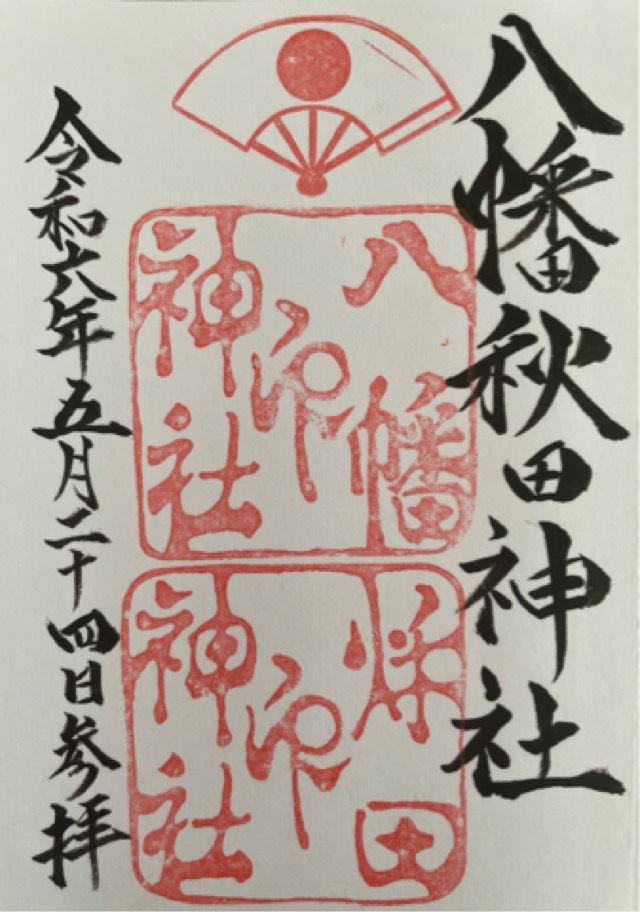 八幡秋田神社
八幡
神社
印
秋田
神社
印
令和六年五月二十四日参拝